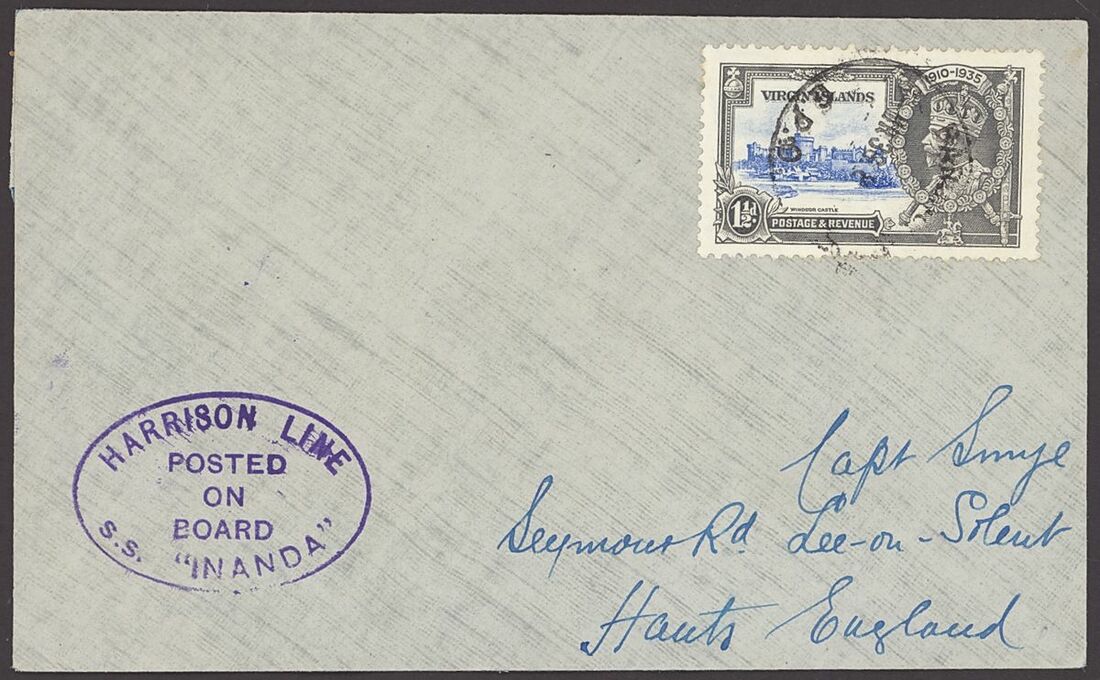 1910-1935
VIRGIN ISLANDS
WINDSOR CASTLE
1½d
POSTAGE & REVENUE
G.P.O
HARRISON LINE
POSTED
ON
BOARD
S.S. "INANDA"
Capt Smye
Seymour Rd. Lee-on-Solent
Hants England